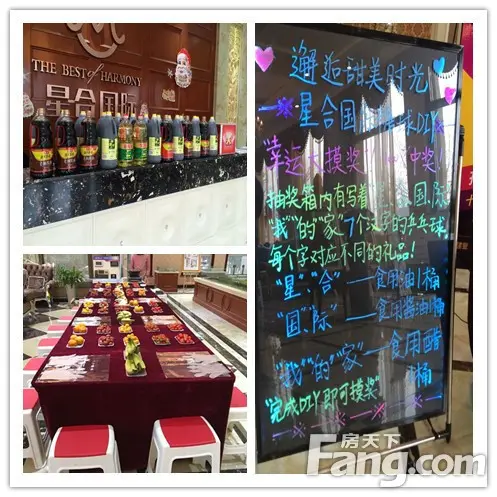 THE BEST of HARMONY
星合国际
邂逅甜美时光
星合国际 DIY
幸运大摸奖! 中奖!
抽奖箱内有写着"星、合、国、际、
"我"的"家"7个汉字的乒乓球,
每个字对应不同的礼品!
"星""合"——食用油1桶
"国、际"——食用酱油1桶
"我""的""家"—食用醋
1桶
"完成DIY即可摸奖"
房天下
Fang.com